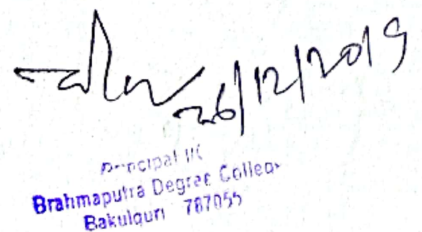 26/12/2019
Principal I/C
Brahmaputra Degree College
Bakulguri 787055